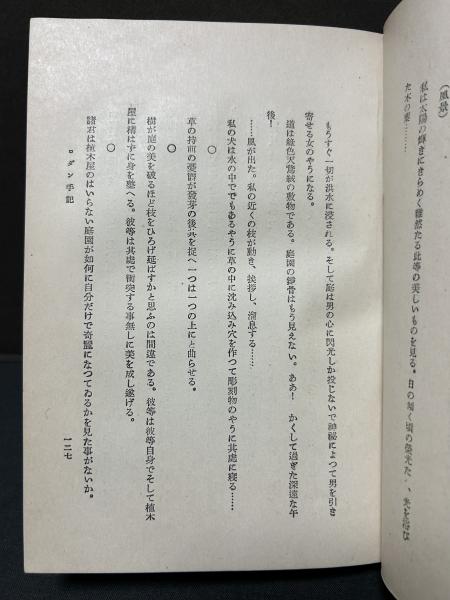 （風景）
私は太陽の輝きにきらめく雑然たる此等の美しいものを見る。日の傾く頃の螢光た
た木の葉………
もうすぐ一切が洪水に浸される。そして庭は男の心に閃光しか投じないで神祕によつて男を引き
寄せる女のやうになる。
道は綠色天鵞絨の敷物である。庭園の鋳骨はもう見えない。ああ！　かくして過ぎた深遠な午
後！
……風が出た。私の近くの枝が動き、挨拶し、溜息する……
私の犬は水の中ででもあるやうに草の中に沈み込み穴を作つて彫刻物のやうに其處に寝る……
○
草の持前の憂鬱が發芽の後莖を捉へ一つは一つの上にと曲らせる。
○
樹が庭の美を破るほど枝をひろげ延ばすかと思ふのは間違である。彼等は彼等自身でそして植木
屋に構はずに身を整へる。彼等は其處で衝突する事無しに美を成し遂げる。
○
諸君は植木屋のはいらない庭園が如何に自分だけで奇麗になつてゐるかを見た事がないか。
ロダン手記
一二七